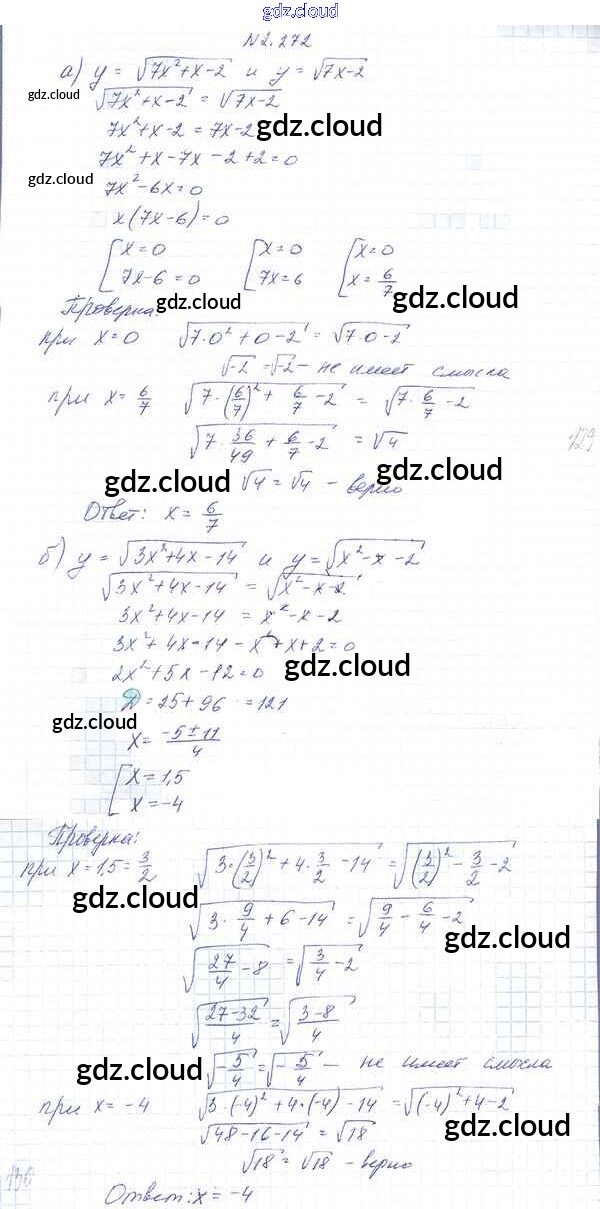 gdz.cloud
N 2.272
а) y = √(7x²+x-2) и y = √(7x-2)
gdz.cloud √(7x²+x-2) = √(7x-2)
7x²+x-2 = 7x-2 gdz.cloud
7x²+x-7x-2+2=0
gdz.cloud 7x²-6x=0
x(7x-6)=0
[x=0 [x=0 [x=0
7x-6=0 7x=6 x=6/7
Проверка: gdz.cloud gdz.cloud
при x=0 √(7·0²+0-2) = √(7·0-2)
√-2 = √-2 - не имеет смысла
при x=6/7 √(7·(6/7)²+6/7-2) = √(7·6/7-2)
√(7·36/49+6/7-2) = √4
129
gdz.cloud √4=√4 - верно gdz.cloud
Ответ: x=6/7
б) y=√(3x²+4x-14) и y=√(x²-x-2)
√(3x²+4x-14) = √(x²-x-2)
3x²+4x-14 = x²-x-2
3x²+4x-14-x²+x+2=0
2x²+5x-12=0 gdz.cloud
Д=25+96=121
gdz.cloud x=(-5±11)/4
[x=1,5
x=-4
Проверка:
при x=1,5=3/2 √(3·(3/2)²+4·3/2-14) = √((3/2)²-3/2-2)
gdz.cloud
√(3·9/4+6-14) = √(9/4-6/4-2)
gdz.cloud
√(27/4-8) = √(3/4-2)
√((27-32)/4) = √((3-8)/4)
gdz.cloud √(-5/4)=√(-5/4) - не имеет смысла
при x=-4 √(3·(-4)²+4·(-4)-14) = √((-4)²+4-2)
gdz.cloud
√(48-16-14) = √18
√18=√18 - верно
Ответ: x=-4